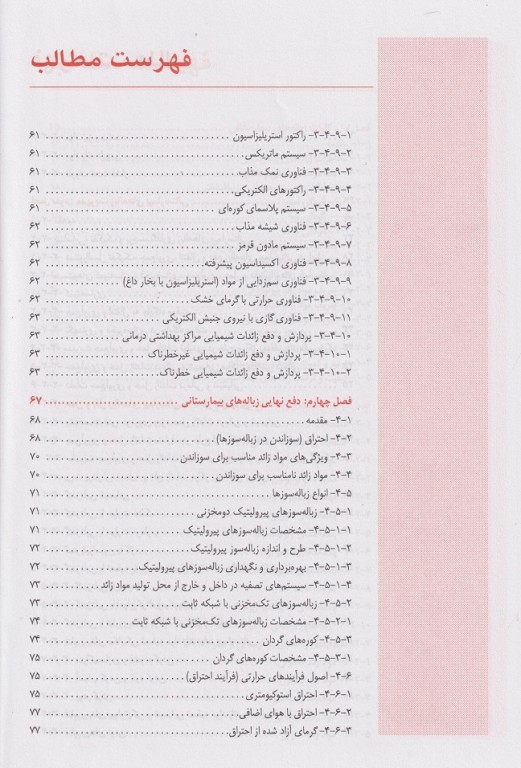 فهرست مطالب
۳-۴-۹-۱- راکتور استریلیزاسیون ........ ۶۱
۳-۴-۹-۲- سیستم ماتریکس ........ ۶۱
۳-۴-۹-۳- فناوری نمک مذاب ........ ۶۱
۳-۴-۹-۴- راکتورهای الکتریکی ........ ۶۱
۳-۴-۹-۵- سیستم پلاسمای کوره‌ای ........ ۶۱
۳-۴-۹-۶- فناوری شیشه مذاب ........ ۶۲
۳-۴-۹-۷- سیستم مادون قرمز ........ ۶۲
۳-۴-۹-۸- فناوری اکسیداسیون پیشرفته ........ ۶۲
۳-۴-۹-۹- فناوری سم‌زدایی از مواد (استریلیزاسیون با بخار داغ) ........ ۶۲
۳-۴-۹-۱۰- فناوری حرارتی با گرمای خشک ........ ۶۲
۳-۴-۹-۱۱- فناوری گازی با نیروی جنبش الکتریکی ........ ۶۳
۳-۴-۱۰- پردازش و دفع زائدات شیمیایی مراکز بهداشتی درمانی ........ ۶۳
۳-۴-۱۰-۱- پردازش و دفع زائدات شیمیایی غیرخطرناک ........ ۶۳
۳-۴-۱۰-۲- پردازش و دفع زائدات شیمیایی خطرناک ........ ۶۳
فصل چهارم: دفع نهایی زباله‌های بیمارستانی ........ ۶۷
۴-۱- مقدمه ........ ۶۸
۴-۲- احتراق (سوزاندن در زباله‌سوزها) ........ ۶۸
۴-۳- ویژگی‌های مواد زائد مناسب برای سوزاندن ........ ۷۰
۴-۴- مواد زائد نامناسب برای سوزاندن ........ ۷۰
۴-۵- انواع زباله‌سوزها ........ ۷۱
۴-۵-۱- زباله‌سوزهای پیرولیتیک دومخزنی ........ ۷۱
۴-۵-۱-۱- مشخصات زباله‌سوزهای پیرولیتیک ........ ۷۱
۴-۵-۱-۲- طرح و اندازه زباله‌سوز پیرولیتیک ........ ۷۲
۴-۵-۱-۳- بهره‌برداری و نگهداری زباله‌سوزهای پیرولیتیک ........ ۷۲
۴-۵-۱-۴- سیستم‌های تصفیه در داخل و خارج از محل تولید مواد زائد ........ ۷۳
۴-۵-۲- زباله‌سوزهای تک‌مخزنی با شبکه ثابت ........ ۷۳
۴-۵-۲-۱- مشخصات زباله‌سوزهای تک‌مخزنی با شبکه ثابت ........ ۷۴
۴-۵-۳- کوره‌های گردان ........ ۷۴
۴-۵-۳-۱- مشخصات کوره‌های گردان ........ ۷۵
۴-۶- اصول فرآیندهای حرارتی (فرآیند احتراق) ........ ۷۵
۴-۶-۱- احتراق استوکیومتری ........ ۷۵
۴-۶-۲- احتراق با هوای اضافی ........ ۷۷
۴-۶-۳- گرمای آزاد شده از احتراق ........ ۷۷